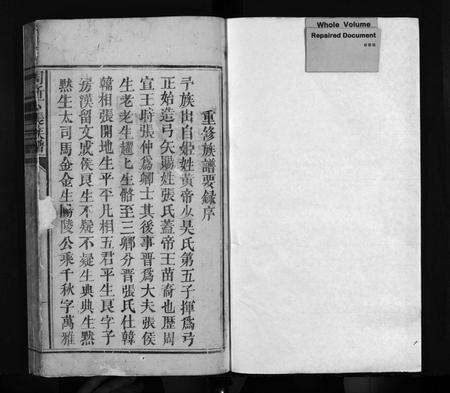 Whole Volume
Repaired Document
重修族譜要録序
予族出自姬姓黃帝少昊氏第五子揮為弓
正始造弓矢賜姓張氏蓋帝王苗裔也歷周
宣王時張仲為卿士其後事晉為大夫張侯
生老老生趯趯生骼至三卿分晉張氏仕韓
韓相張開地生平平凡相五君平生良字子
房漢留文成侯良生不疑不疑生典典生默
默生太司馬金金生陽陵公乘千秋字萬雅